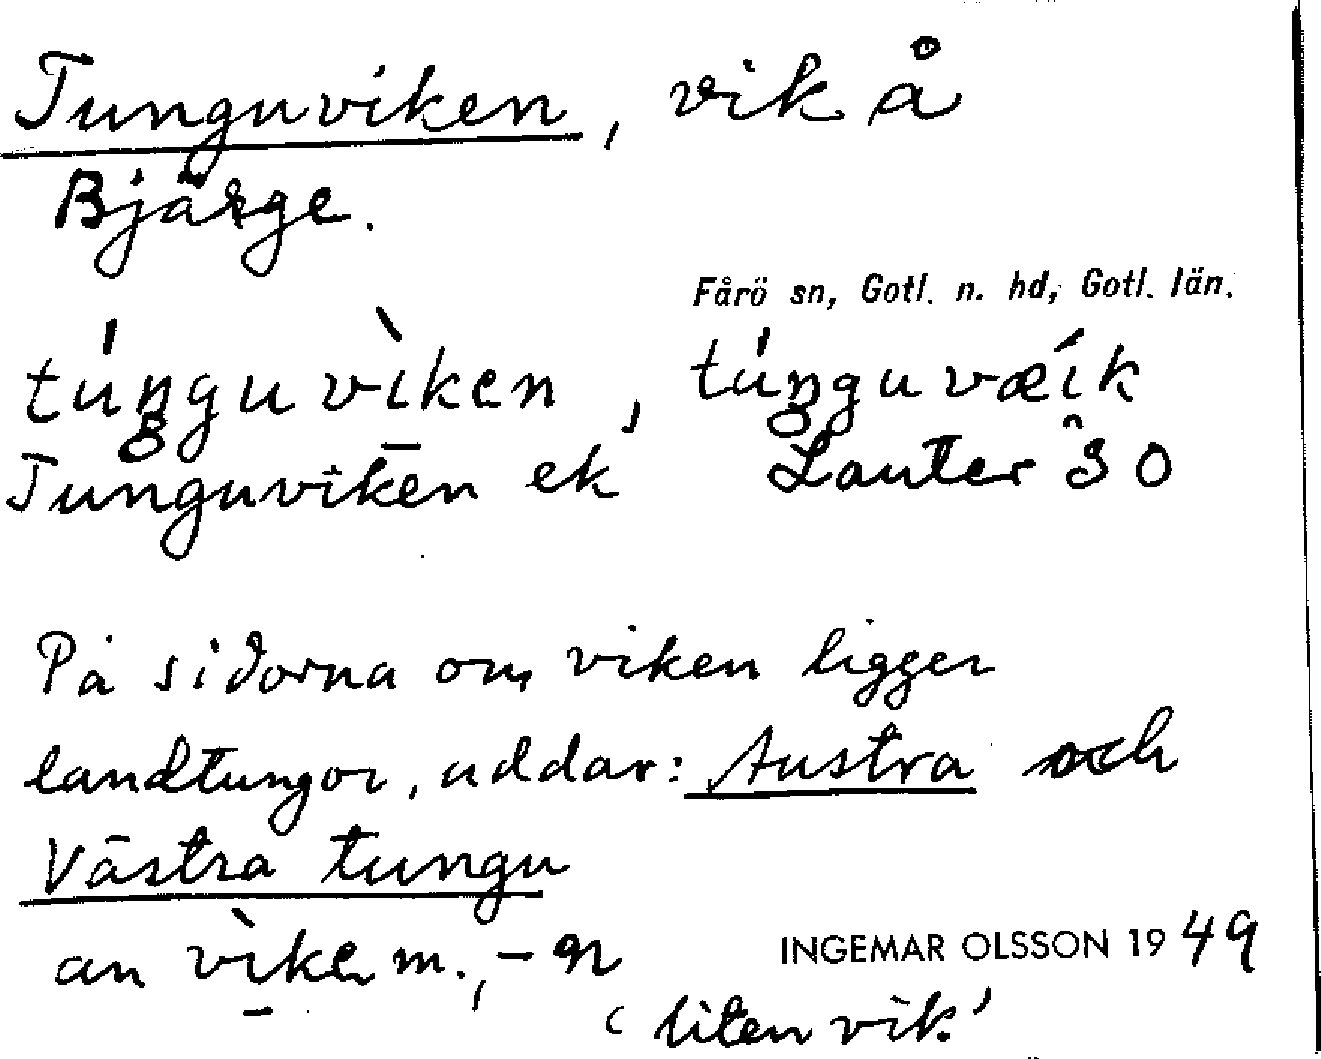 Tunguviken, vik å
Bjärge.
Fårö sn, Gotl. n. hd, Gotl. län.
túŋguvìken, túŋguvæík
Tunguviken ek Lauter SO
På sidorna om viken ligger
landtungor, uddar: Austra och
Västra tungu
an vìke m., -n
INGEMAR OLSSON 1949
'liten vik'